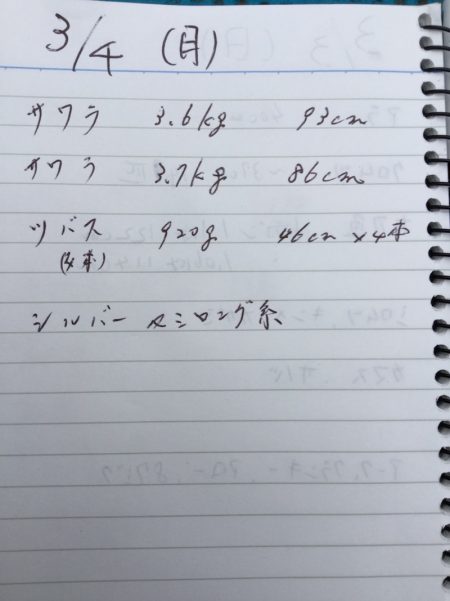 3/4 (月)
サワラ 3.6kg 93cm
サワラ 3.7kg 86cm
ツバス 920g 46cm×4本
(4本)
シルバー &ミロング系